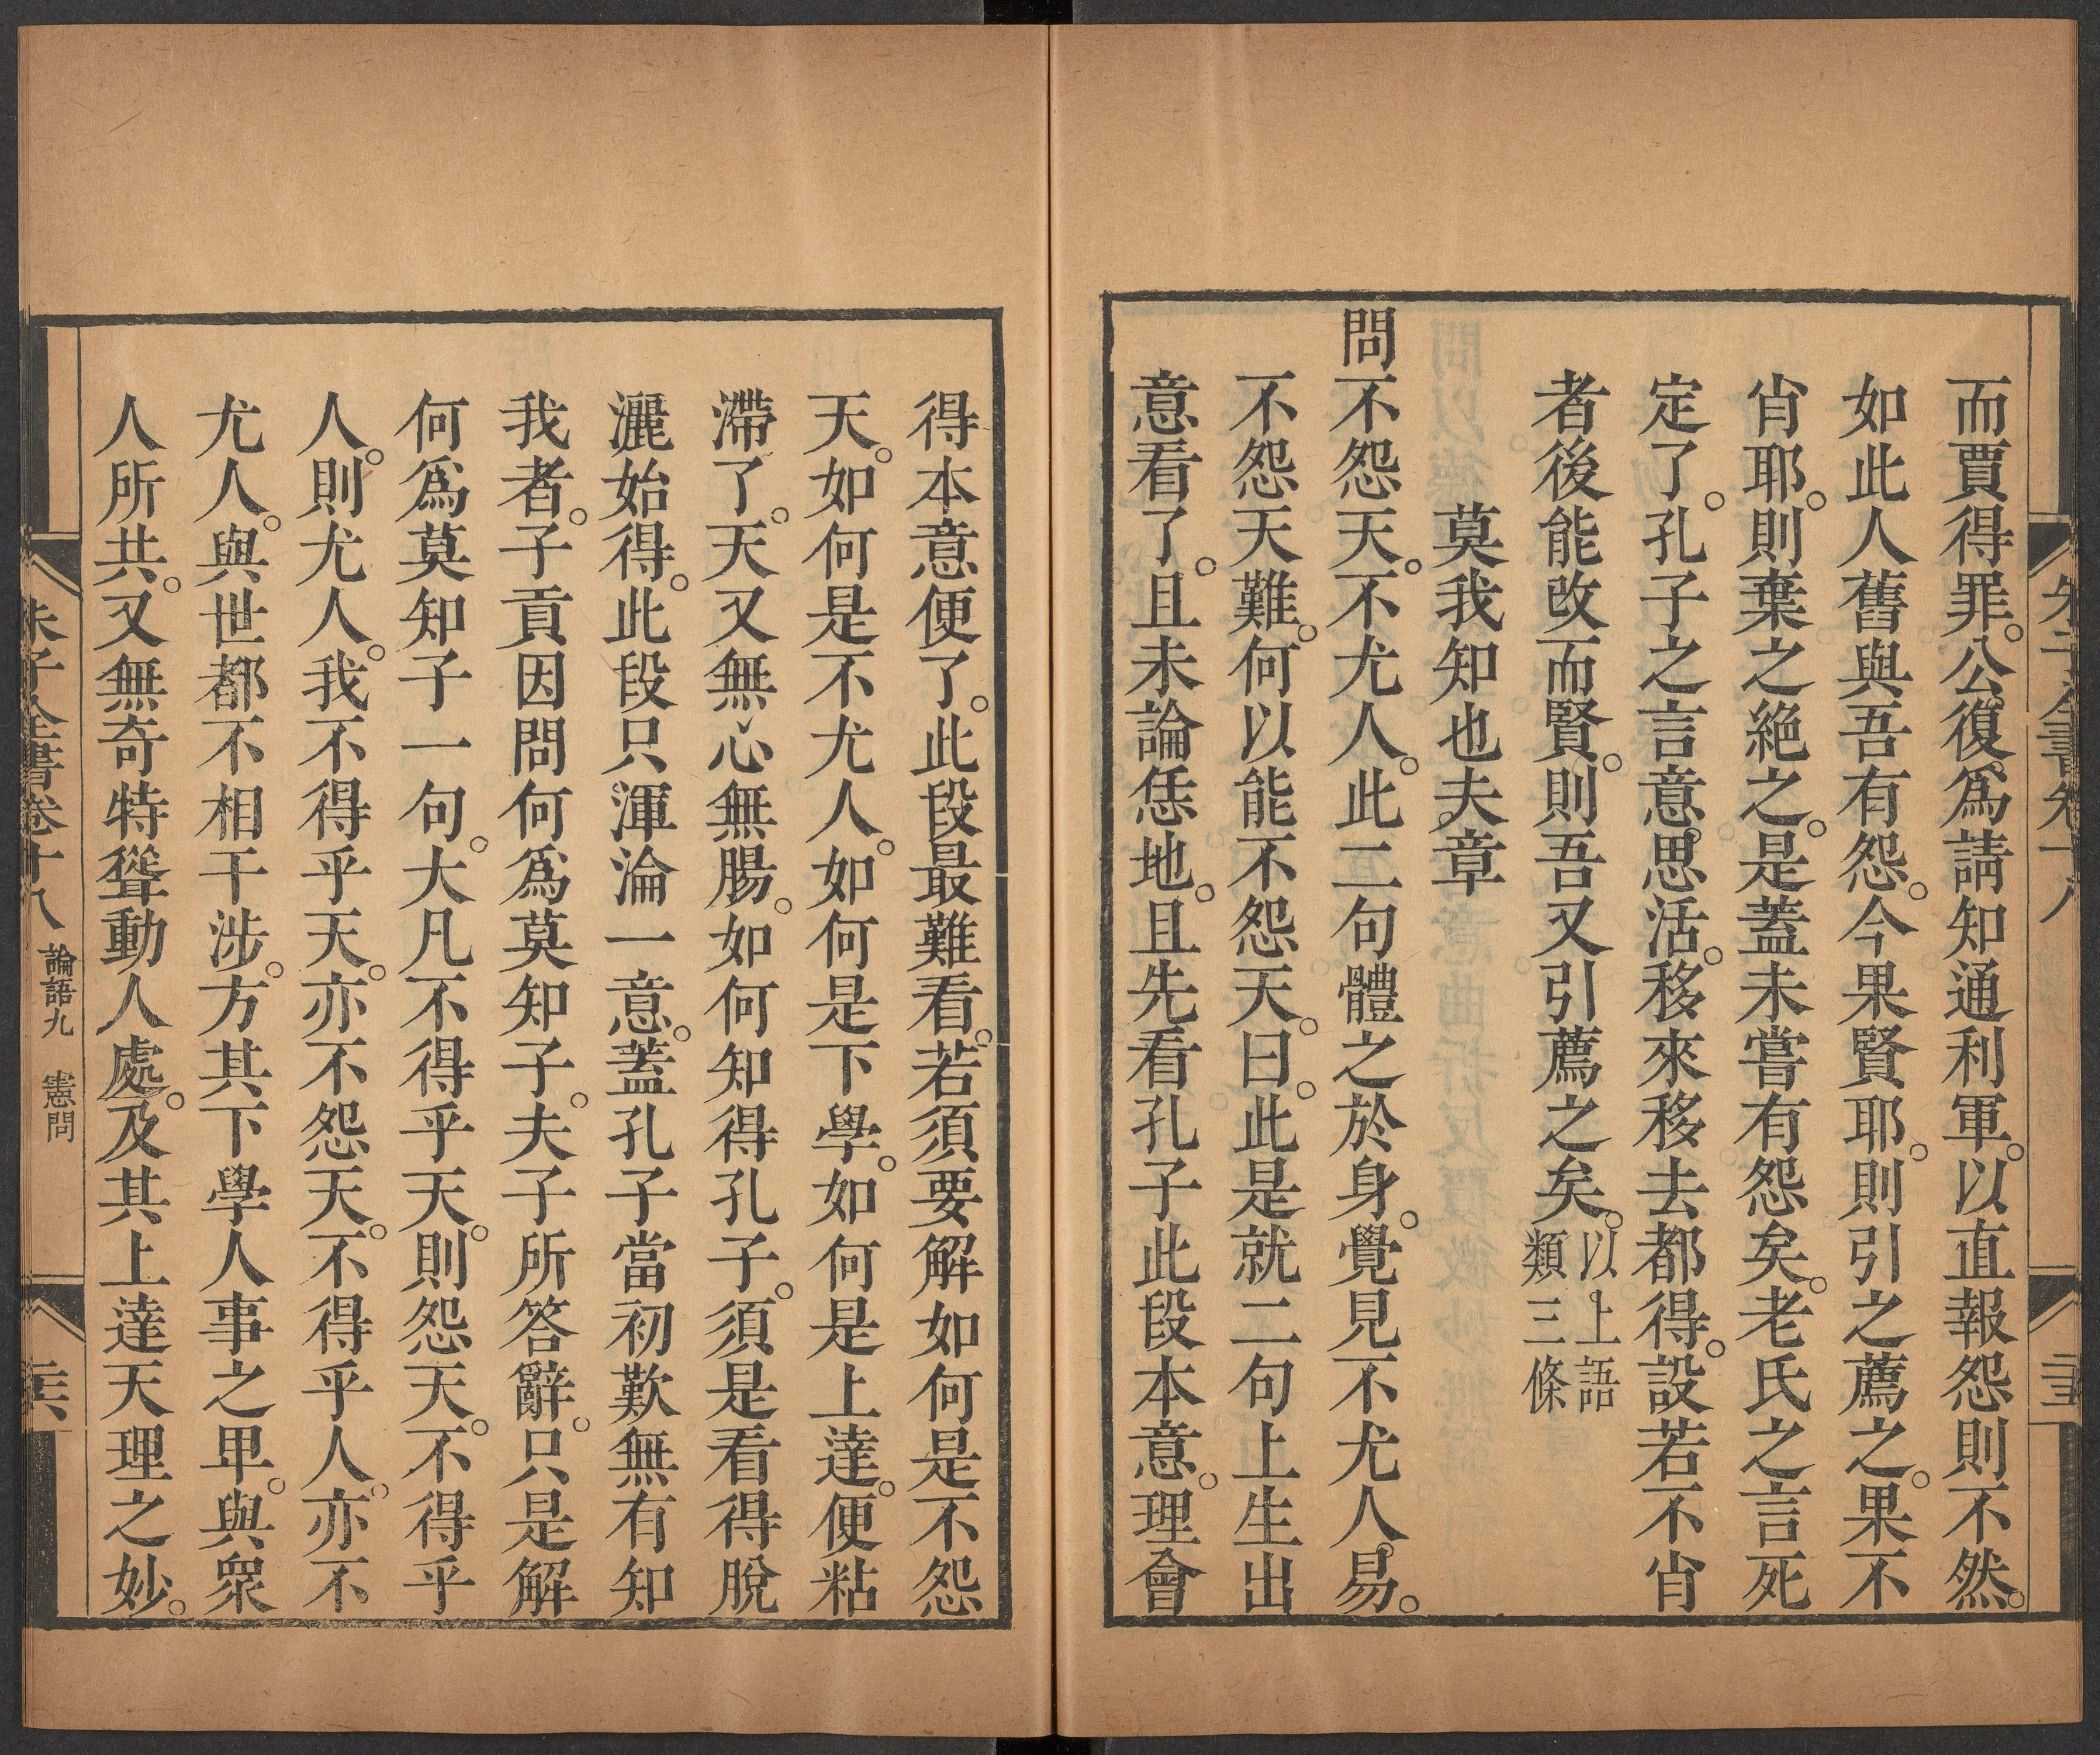 而賈得罪。公復爲請知通利軍。以直報怨則不然。
如此人舊與吾有怨。今果賢耶。則引之薦之。果不
肖耶。則棄之絶之。是蓋未嘗有怨矣。老氏之言死
定了。孔子之言意思活。移來移去都得。設若不肖
者後能改而賢。則吾又引薦之矣。以上語
類三條
莫我知也夫章
問不怨天。不尤人。此二句體之於身。覺見不尤人。易。
不怨天難。何以能不怨天。曰。此是就二句上生出
意看了。且未論恁地。且先看孔子此段本意。理會
得本意便了。此段最難看。若須要解如何是不怨
天。如何是不尤人。如何是下學。如何是上達。便粘
滯了。天又無心無腸。如何知得孔子。須是看得脫
灑始得。此段只渾淪一意。蓋孔子當初歎無有知
我者。子貢因問何爲莫知子。夫子所答辭。只是解
何爲莫知子一句。大凡不得乎天。則怨天。不得乎
人。則尤人。我不得乎天。亦不怨天。不得乎人。亦不
尤人。與世都不相干涉。方其下學人事之卑。與眾
人所共。又無奇特聳動人處。及其上達天理之妙。
朱子全書卷十八 論語九 憲問